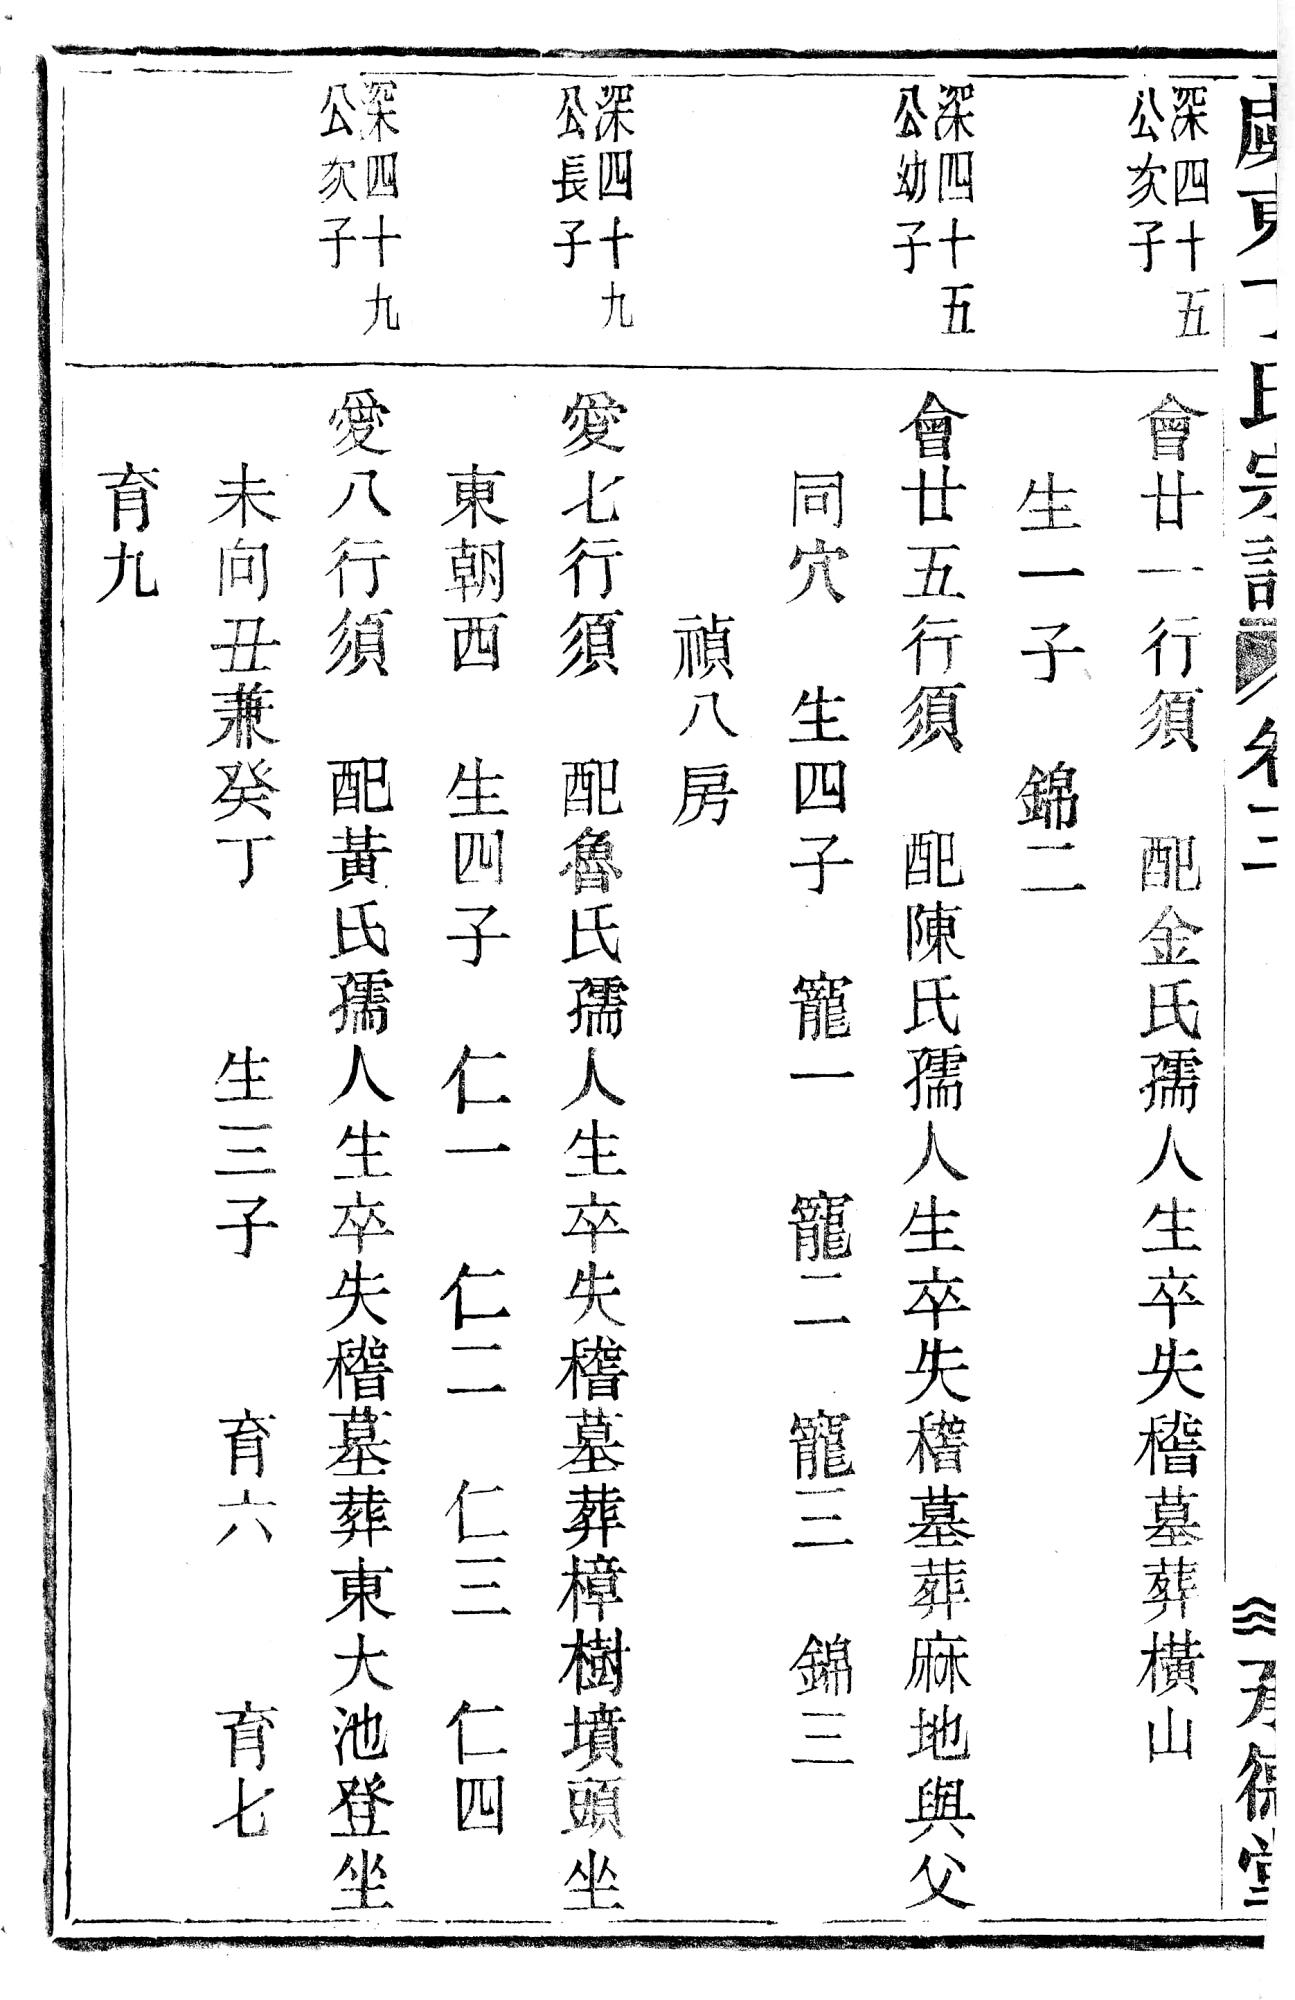 虞東丁氏宗譜 卷二 承德堂
深四十五
公次子
會廿一行須 配金氏孺人生卒失稽墓葬橫山
生一子 錦二
深四十五
公幼子
會廿五行須 配陳氏孺人生卒失稽墓葬麻地與父
同穴 生四子 寵一 寵二 寵三 錦三
禎八房
深四十九
公長子
愛七行須 配魯氏孺人生卒失稽墓葬樟樹墳頭坐
東朝西 生四子 仁一 仁二 仁三 仁四
深四十九
公次子
愛八行須 配黃氏孺人生卒失稽墓葬東大池登坐
未向丑兼癸丁 生三子 育六 育七
育九